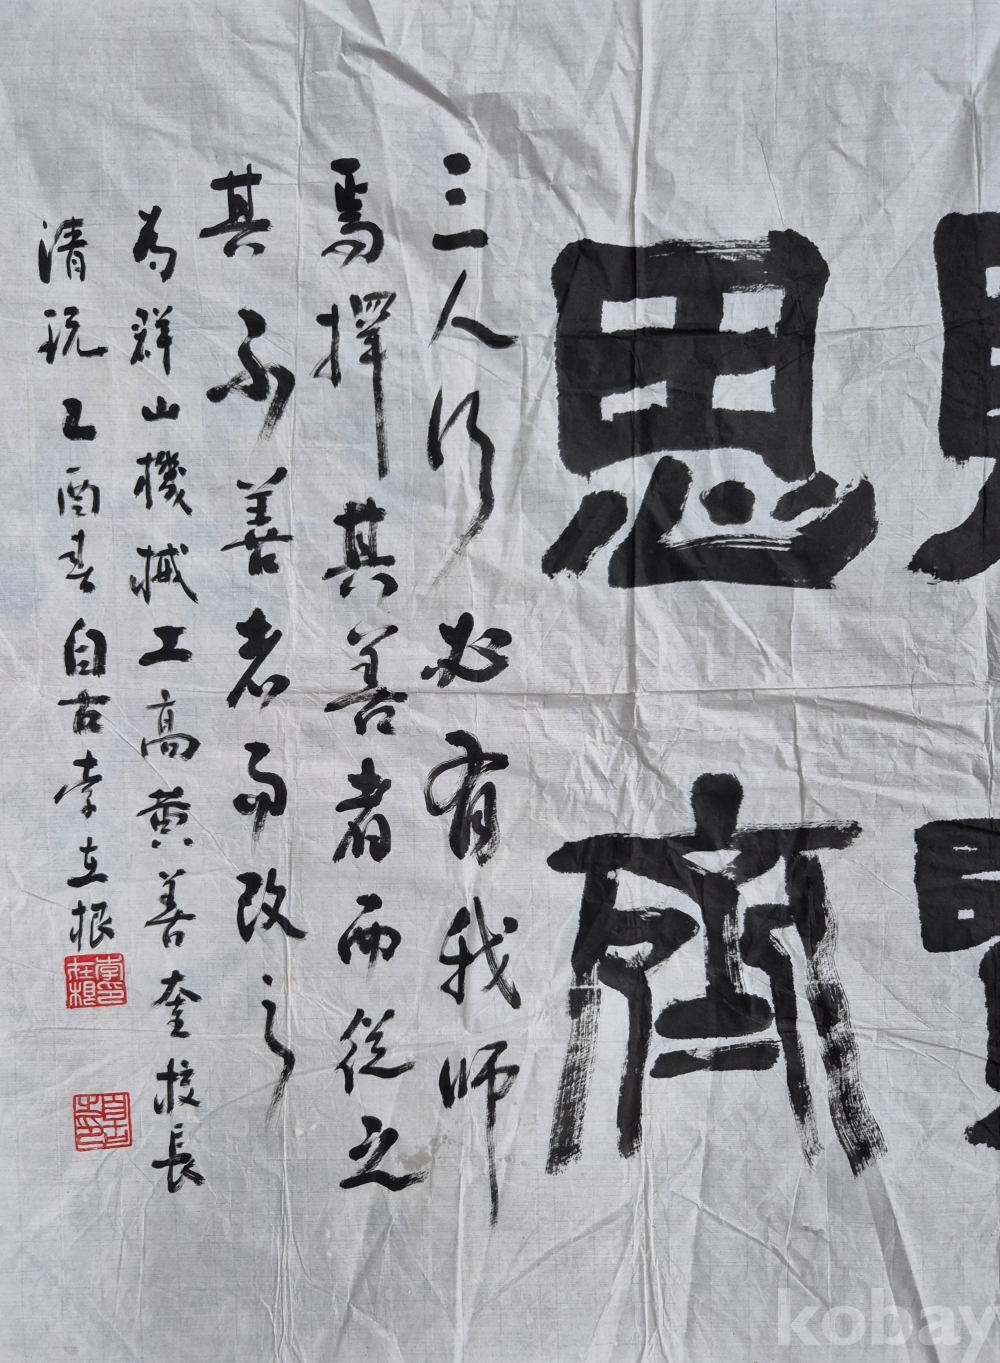 見賢
思齊
三人行必有我師
焉擇其善者而從之
其不善者而改之
為群山機械工高黃善奎校長
清玩乙酉春自古李在根
kobay